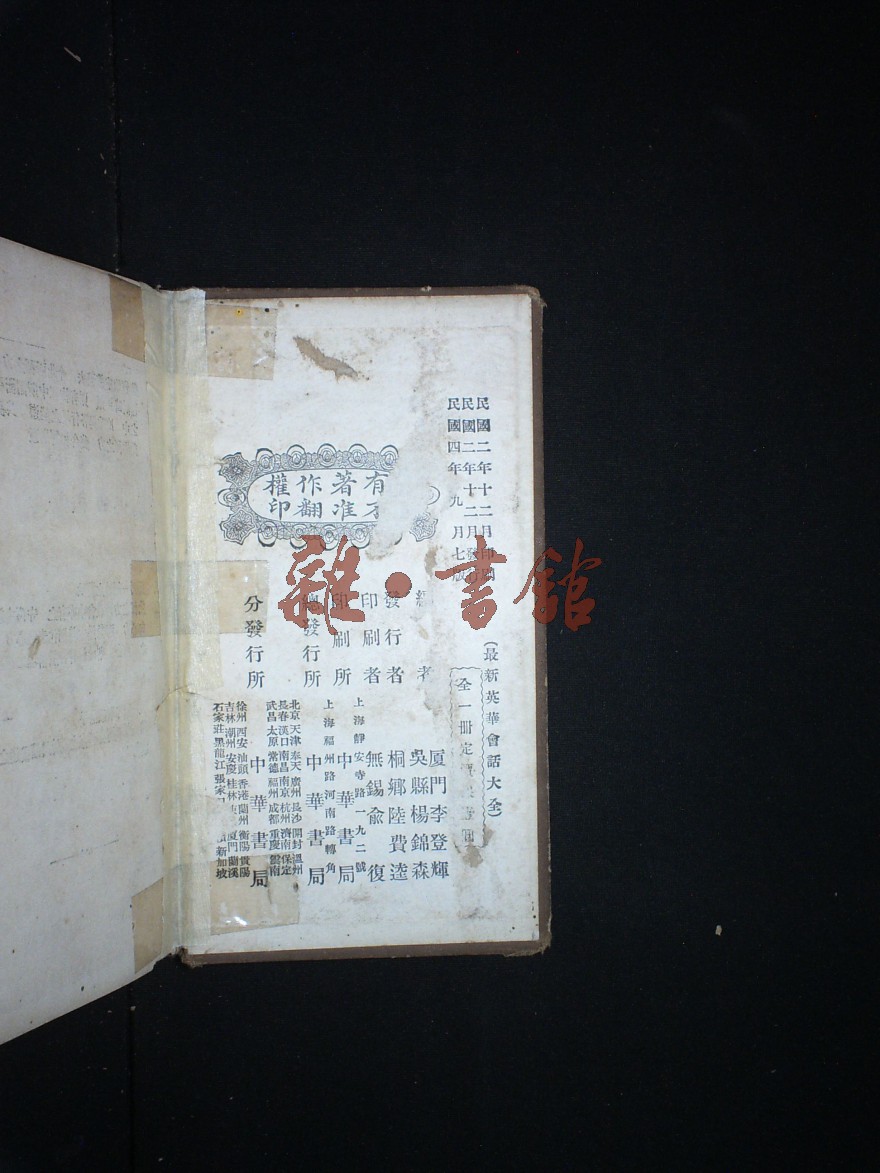 民國二年十二月印刷
民國二年十二月發行
民國四年九月七版
(最新英華會話大全)
全一冊定
者
廈門李登輝
吳縣楊錦森
發行者
桐鄉陸費逵
印刷者
無錫俞復
印刷所
上海靜安寺路一九二號
中華書局
總發行所
上海福州路河南路轉角
中華書局
分發行所
北京天津奉天廣州長沙開封溫州
長春漢口南昌南京杭州濟南保定
武昌太原常德福州成都重慶雲南
中華書局
徐州西安汕頭香港蘭州衡陽貴陽
吉林潮州安慶桂林 廈門蘭溪
石家莊黑龍江張家口 新加坡
有著作權
准翻印
雜·書館